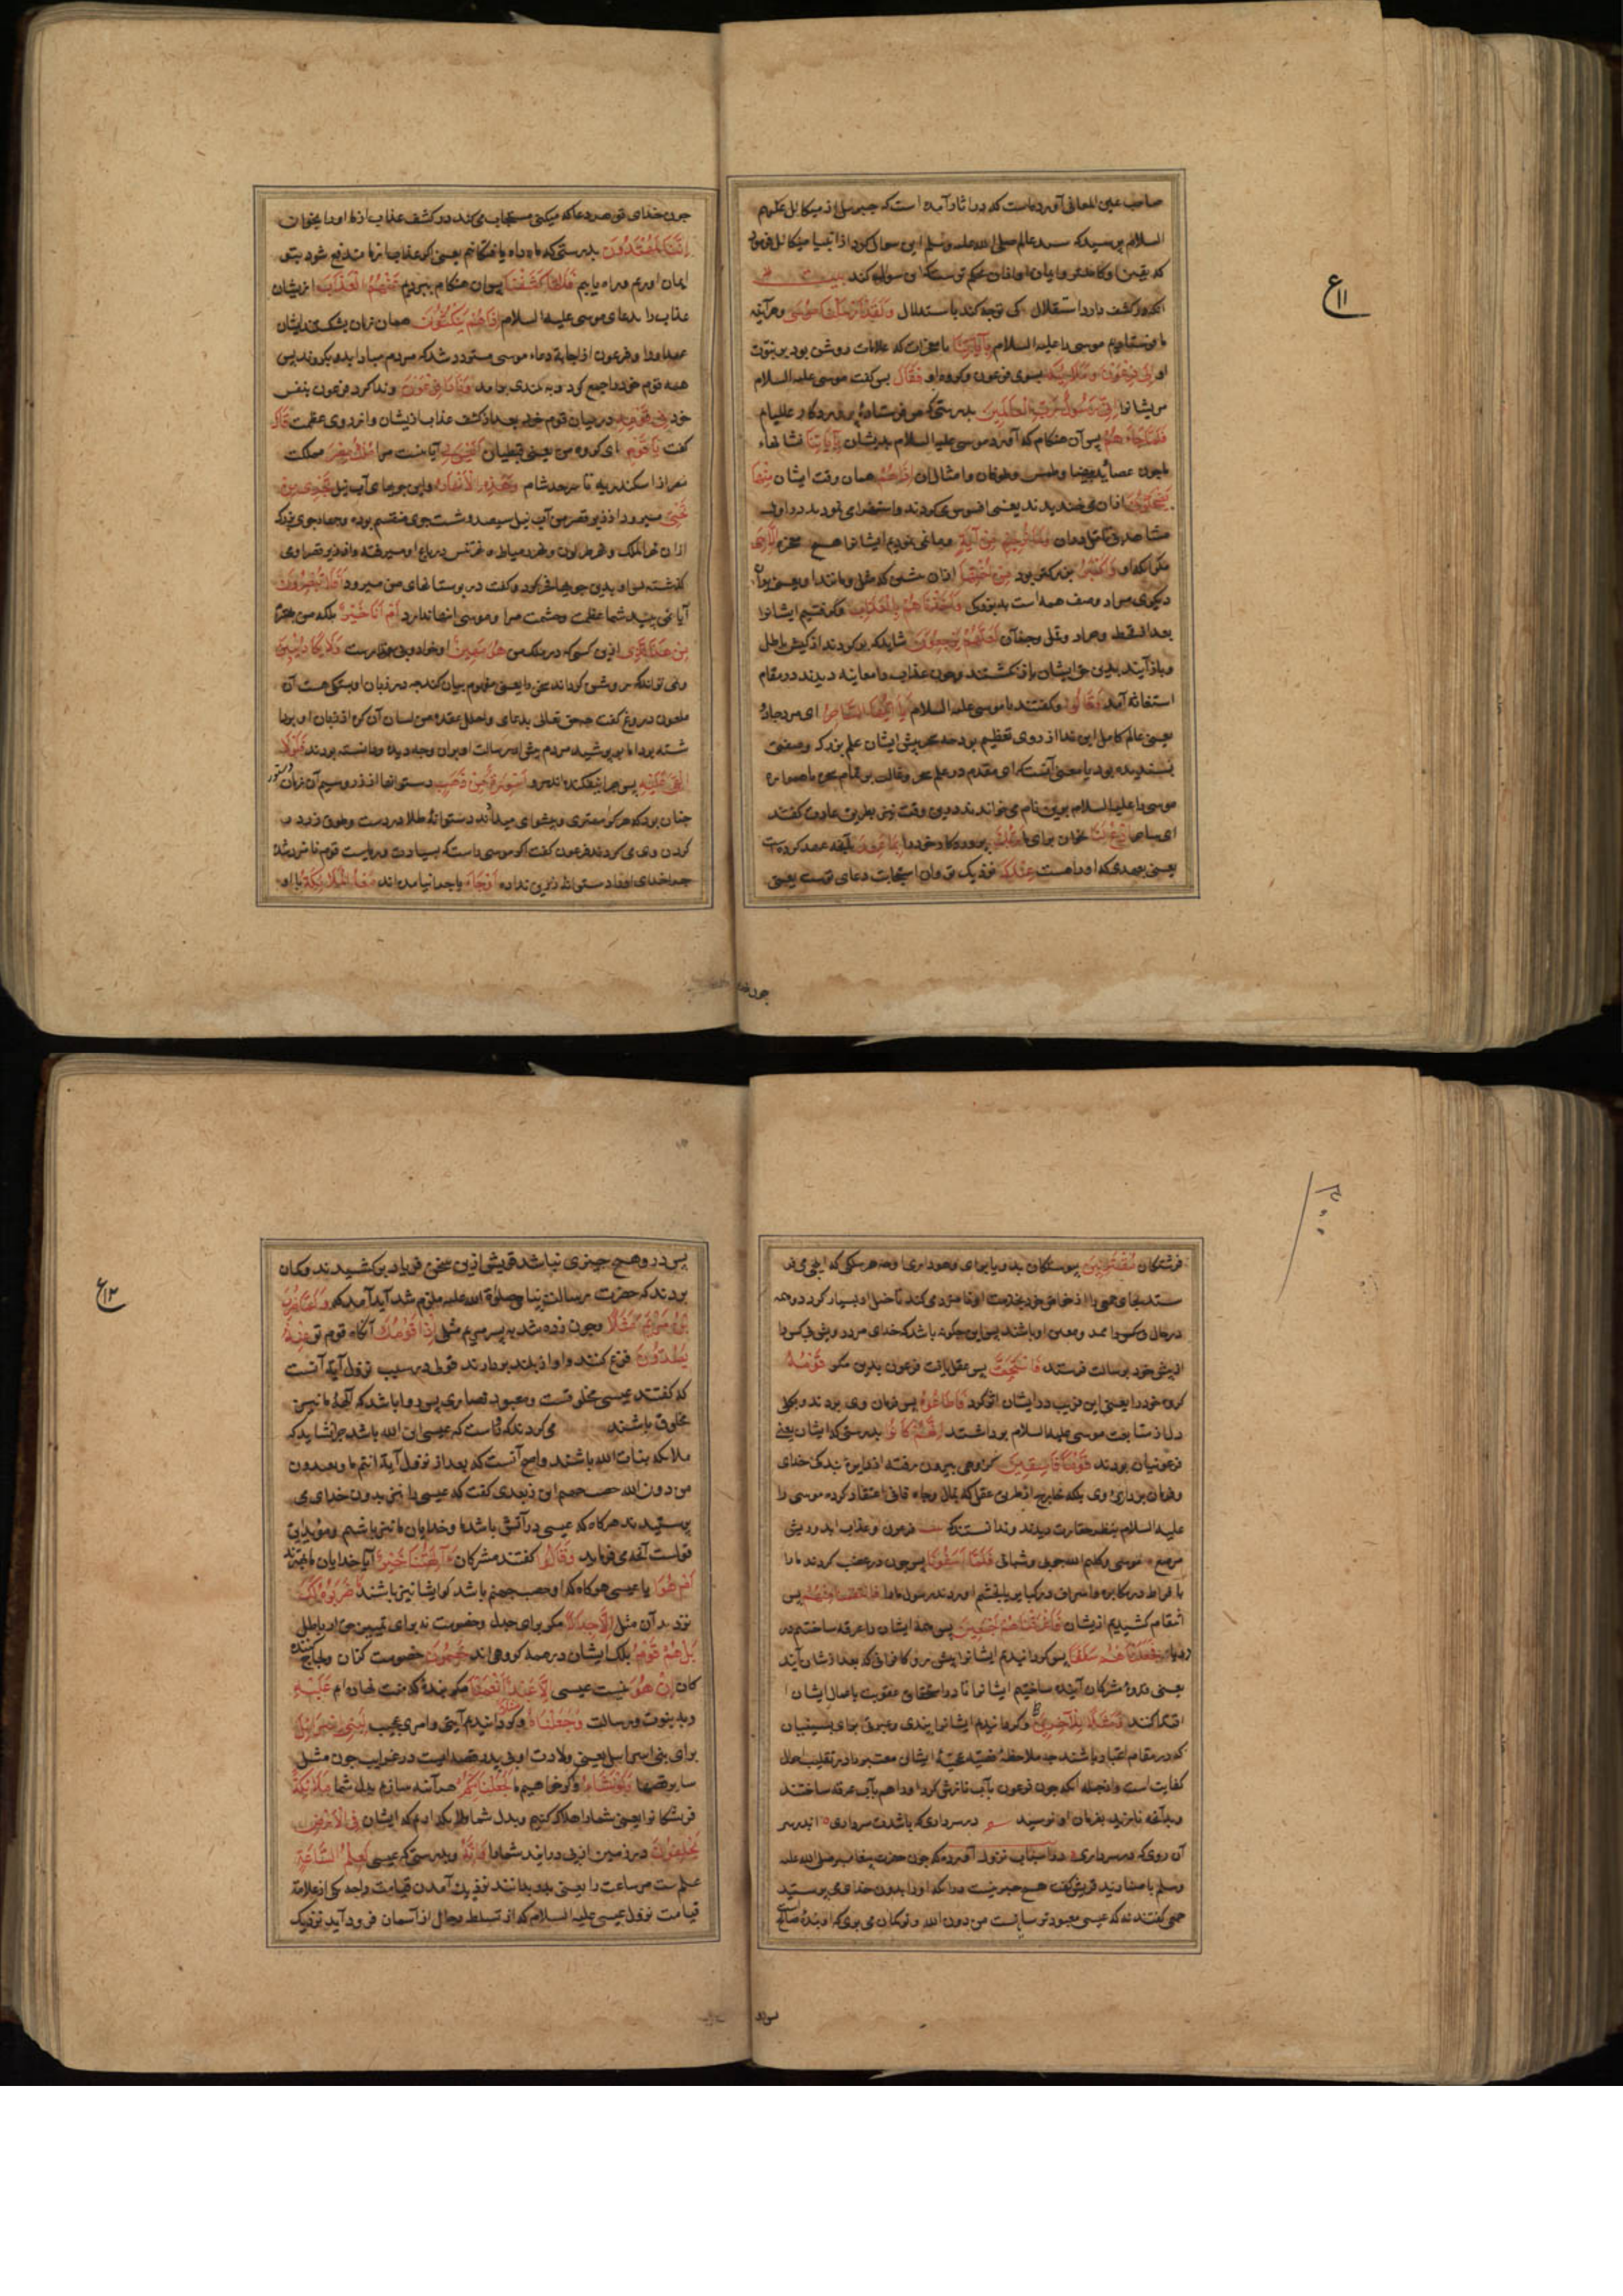 صاحب عین المعانی آورده است که در اثار آمده است که جبرئیل از میکائیل علیهم
السلام پرسید که سید عالم صلی الله علیه وسلم این سوال کرد از انبیا میکائیل فرمود
که یقین او کاملتر و ایمان او ازان محکم تر است که این سوال کند بیت
انکه در کشف دارد استقلال کی توجه کند باستدلال وَلَقَدْ أَرْسَلْنَا مُوسَى وهر آینه
ما فرستادیم موسی را علیه السلام بِآيَاتِنَا با معجزات که علامات روشن بود بر نبوت
او إِلَى فِرْعَوْنَ وَمَلَئِهِ بسوی فرعون وکروه او فَقَالَ پس کفت موسی علیه السلام
مر یشانرا إِنِّي رَسُولُ رَبِّ الْعَالَمِينَ بدرستی که من فرستادۀ پروردکار عالمیام
فَلَمَّا جَاءَهُمْ پس آن هنکام که آورد موسی علیه السلام بدیشان بِآيَاتِنَا نشانهاء
ما چون عصا وید بیضا وطمس وطوفان وامثال ان إِذَا هُمْ همان وقت ایشان مِنْهَا
يَضْحَكُونَ ازان می خندیدند یعنی افسوس می کردند واستهزا می نمودند در اول
مشاهده بی تامل دران وَمَا نُرِيهِمْ مِنْ آيَةٍ ومانمی نمودیم ایشانرا هیچ معجزه إِلَّا هِيَ
مکر انکه او أَكْبَرُ بزرکتر بود مِنْ أُخْتِهَا ازان مثلی که مثل ومانند او یعنی بران
دیکری مراد وصف همه است به بزرکی وَأَخَذْنَاهُمْ بِالْعَذَابِ وکرفتیم ایشانرا
بعذاب قحط وجراد وقمل وجز آن لَعَلَّهُمْ يَرْجِعُونَ شاید که بر کردند از کیش باطل
وباز آیند بدین حق ایشان باز نکشتند وچون عذاب را معاینه دیدند در مقام
استغاثه آمدند وَقَالُوا وکفتند با موسی علیه السلام يَا أَيُّهَا السَّاحِرُ ای مرد جادو
یعنی عالم کامل این ندا از روی تعظیم بود چه سحر پیش ایشان علم بزرک وصفتی
پسندیده بود یا معنی آنست که ای مقدم در علم سحر وغالب بر تمام سحره یا همواره
موسی را علیه السلام بدین نام می خواندند درین وقت نیز بطریق عادت کفتند
ای ساحر ادْعُ لَنَا بخوان برای ما رَبَّكَ پروردکار خود را بِمَا عَهِدَ بآنچه عهد کرده است
یعنی بعهدی که او راهست عِنْدَكَ نزدیک تو وان استجابت دعای تست یعنی
چون خدای
۱۱ ع
چون خدای تو هر دعا که میکنی مستجاب می کند در کشف عذاب از ما او را بخوان
إِنَّنَا لَمُهْتَدُونَ بدرستی که ماه راه یافتکانیم یعنی اکر عذاب از ما مندفع شود بتو
ایمان اوریم وراه یابیم فَلَمَّا كَشَفْنَا پس ان هنکام ببردیم عَنْهُمُ الْعَذَابَ ازیشان
عذاب را بدعای موسی علیه السلام إِذَا هُمْ يَنْكُثُونَ همان زمان بشکستند ایشان
عهد او را وفرعون از اجابة دعاء موسی متردد شد که مردم مبادا بدو بکروند پس
همه قوم خود را جمع کرد وبه بلندی برامد وَنَادَى فِرْعَوْنُ وندا کرد فرعون بنفس
خود فِي قَوْمِهِ در میان قوم خود بعد از کشف عذاب ازیشان واز روی عظمت قَالَ
کفت يَا قَوْمِ ای کروه من یعنی قبطیان أَلَيْسَ لِي آیا نیست مرا مُلْكُ مِصْرَ مملکت
مصر از اسکندریه تا سرحد شام وَهَذِهِ الْأَنْهَارُ واین جویهای آب نیل تَجْرِي مِنْ
تَحْتِي میرود از زیر قصر من آب نیل سیصد وشصت جوی منقسم بوده وچهار جوی بزرک
ازان نهر الملک ونهر طولون ونهر دمیاط ونهر تنیس در باغ او میرفته واز زیر قصر اوی
کذشته بود او بدین جویها فخر کرد وکفت در بوستانهای من میرود أَفَلَا تُبْصِرُونَ
آیا نمی بینید شما عظمت وحشمت مرا وموسی اینها ندارد أَمْ أَنَا خَيْرٌ بلکه من بهترم
مِنْ هَذَا الَّذِي ازین کسی که در ملک من هُوَ مَهِينٌ او خوار وبی مقدارست وَلَا يَكَادُ يُبِينُ
ونمی تواند که روشن کرداند سخن را یعنی مفهوم بیان کند چه در زبان او بستکی هست آن
ملعون دروغ کفت چه حق تعالی بدعای واحلل عقدة من لسان آن کره از زبان او بردا
شته بود اما بر پوشید مردم پیش از رسالت او بران وجه دیده ودانسته بودند فَلَوْلَا
أُلْقِيَ عَلَيْهِ پس چرا نیفکنده اند برو أَسْوِرَةٌ مِنْ ذَهَبٍ دستوانها از زر ورسم آن زمان دستور
چنان بود که هر کرا مهتری وپیشوای میدادند دستوانۀ طلا در دست وطوق زر در
کردن وی می کردند فرعون کفت اکر موسی راست که بسیادت وریاست قوم نامزد شده
چرا خدای او را دستوانۀ زرین نداده أَوْ جَاءَ یا چرا نیامده اند مَعَهُ الْمَلَائِكَةُ با او
فرشتکان مُقْتَرِنِينَ پیوستکان بدو ویاری وهوداری او چه هر ملکی که ایلچی می فر
ستد بجای جمعی را از خواص خود بخدمت او نامزد می کند تا خیل او بسیار کردد وهمه
در حال وی کس را ممد ومعین او باشند پس این چکونه باشد که خدای مرد درویش بی کس را
از پیش خود برسالت فرستد فَاسْتَخَفَّ پس سبک عقل یافت فرعون بدین مکر قَوْمَهُ
کروه خود را یعنی این فریب در ایشان اثر کرد فَأَطَاعُوهُ پس فرمان وی بردند وبکلی
دل از متابعت موسی علیه السلام برداشتند إِنَّهُمْ كَانُوا بدرستی که ایشان یعنی
فرعونیان بودند قَوْمًا فَاسِقِينَ کروهی بیرون رفته از دایره بندکی خدای
وفرمان برداری وی بلکه خارج از طریق عقل که بمال وجاه فانی اعتقاد کرده موسی را
علیه السلام بنظر حقارت دیدند وندانستند که بیت فرعون وعذاب ابد وریش
مرصع موسی وکلیم الله چوبی وشبانی فَلَمَّا آسَفُونَا پس چون در غضب کردند ما را
با فراط در مکابره انْتَقَمْنَا مِنْهُمْ پس
انتقام کشیدیم ازیشان فَأَغْرَقْنَاهُمْ أَجْمَعِينَ پس همه ایشان را غرقه ساختیم در
دریا فَجَعَلْنَاهُمْ سَلَفًا پس کردانیدیم ایشانرا پیش رو کافرانی که بعد ازیشان آیند
یعنی قدوۀ مشرکان آینده ساختیم ایشانرا تا در استحقاق عقوبت بامثال ایشان ا
قتدا کنند وَمَثَلًا لِلْآخِرِينَ وکردانیدیم ایشانرا پندی وعبرتی برای پسینیان
که در مقام اعتبار باشند چه ملاحظۀ قضیۀ عجیبۀ ایشان معتبر را در تقلیب احوال
کفایت است وازجمله آنکه چون فرعون بآب نازش کرد او را هم بآب غرقه ساختند
وبدآنچه نازید بفریاد او نرسید شعر در سر داری که باشدت سرداری اندر سر
آن روی که در سر داری در اسباب نزول آورده که چون حضرت پیغامبر صلی الله علیه
وسلم با صنادید قریش کفت هیچ خیر نیست درانکه او را بدون خدا می پرستید
جمعی کفتند نه که عیسی معبود ترسایانست من دون الله وتو کمان می بری که او بندۀ صالح
پس در
۱۲۰۰
پس درو هیچ چیزی نباشد قریش ازین سخن فریاد بر کشیدند وکمان
بردند که حضرت رسالت پناه صلوة الله علیه ملزم شد آیه آمد که وَلَمَّا ضُرِبَ
ابْنُ مَرْيَمَ مَثَلًا وچون زده شد به پسر مریم مثل إِذَا قَوْمُكَ آنکاه قوم تو مِنْهُ
يَصِدُّونَ فزع کنند واواز بلند بردارند قولی در سبب نزول آیة آنست
که کفتند عیسی مخلوقست ومعبود نصاری پس روا باشد که آلهۀ ما نیز
مخلوق باشند می کردند که راست که عیسی ابن الله باشد چرا نشاید که
ملائکه بنات الله باشند واصح آنست که بعد از نزول آیة انتم وما تعبدون
من دون الله حصب جهنم ابن زبعری کفت که عیسی را نیز بدون خدای می
پرستیدند هرکاه که عیسی در آتش باشد ما وخدایان ما نیز باشیم ومؤید این
قولست آنچه می فرماید وَقَالُوا کفتند مشرکان أَآلِهَتُنَا خَيْرٌ آیا خدایان ما بهترند
أَمْ هُوَ یا عیسی هرکاه که او حصب جهنم باشد کو ایشان نیز باشند مَا ضَرَبُوهُ لَكَ
نزدند آن مثل إِلَّا جَدَلًا مکر برای جدل وخصومت نه برای تمییز حق از باطل
بَلْ هُمْ قَوْمٌ بلکه ایشان در همه کروهی اند خَصِمُونَ خصومت کنان ولجاج کننده
کان إِنْ هُوَ نیست عیسی إِلَّا عَبْدٌ أَنْعَمْنَا مکر بندۀ که منت نهاده ام عَلَيْهِ
وبر بنبوت ورسالت وَجَعَلْنَاهُ مَثَلًا وکردانیدیم آیتی وامری عجیب لِبَنِي إِسْرَائِيلَ
برای بنی اسرائیل یعنی ولادت او بی پدر قصه ایست در غرایب چون مثل
سایر قصها وَلَوْ نَشَاءُ واکر خواهیم ما لَجَعَلْنَا مِنْكُمْ هر آینه سازیم بدل شما مَلَائِكَةً
فرشتکانرا یعنی شما را هلاک کنیم وبدل شما ملائکه آریم که ایشان فِي الْأَرْضِ
يَخْلُفُونَ در زمین از پی درایند شما را وَإِنَّهُ وبدرستی که عیسی لَعِلْمٌ لِلسَّاعَةِ
علمست مر ساعت را یعنی بدو بدانند نزدیک آمدن قیامت را چه یکی از علامة
قیامت نزول عیسی علیه السلام که از تسلط دجال از آسمان فرود آید نزدیک
۱۲ ع